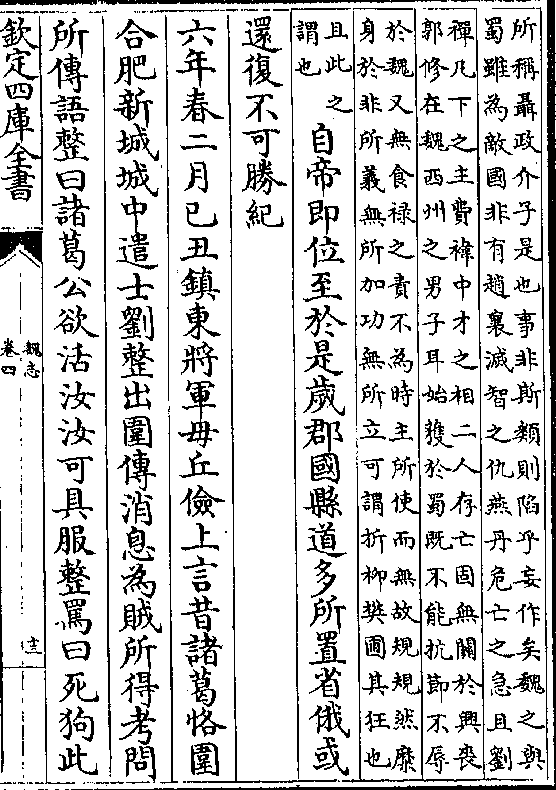 所稱聶政介子是也事非斯類則陷乎妄作矣魏之與
蜀雖為敵國非有趙襄滅智之仇燕丹危亡之急且劉
禪凡下之主費禕中才之相二人存亡固無關於興喪
郭修在魏西州之男子耳始獲於蜀既不能抗節不辱
於魏又無食祿之責不為時主所使而無故規規然糜
身於非所義無所加功無所立可謂折柳樊圃其狂也
且此之
謂也
自帝即位至於是歲郡國縣道多所置省俄或
還復不可勝紀
六年春二月己丑鎮東將軍毋丘儉上言昔諸葛恪圍
合肥新城城中遣士劉整出圍傳消息為賊所得考問
所傳語整曰諸葛公欲活汝汝可具服整罵曰死狗此
欽定四庫全書
魏志
卷四
十三